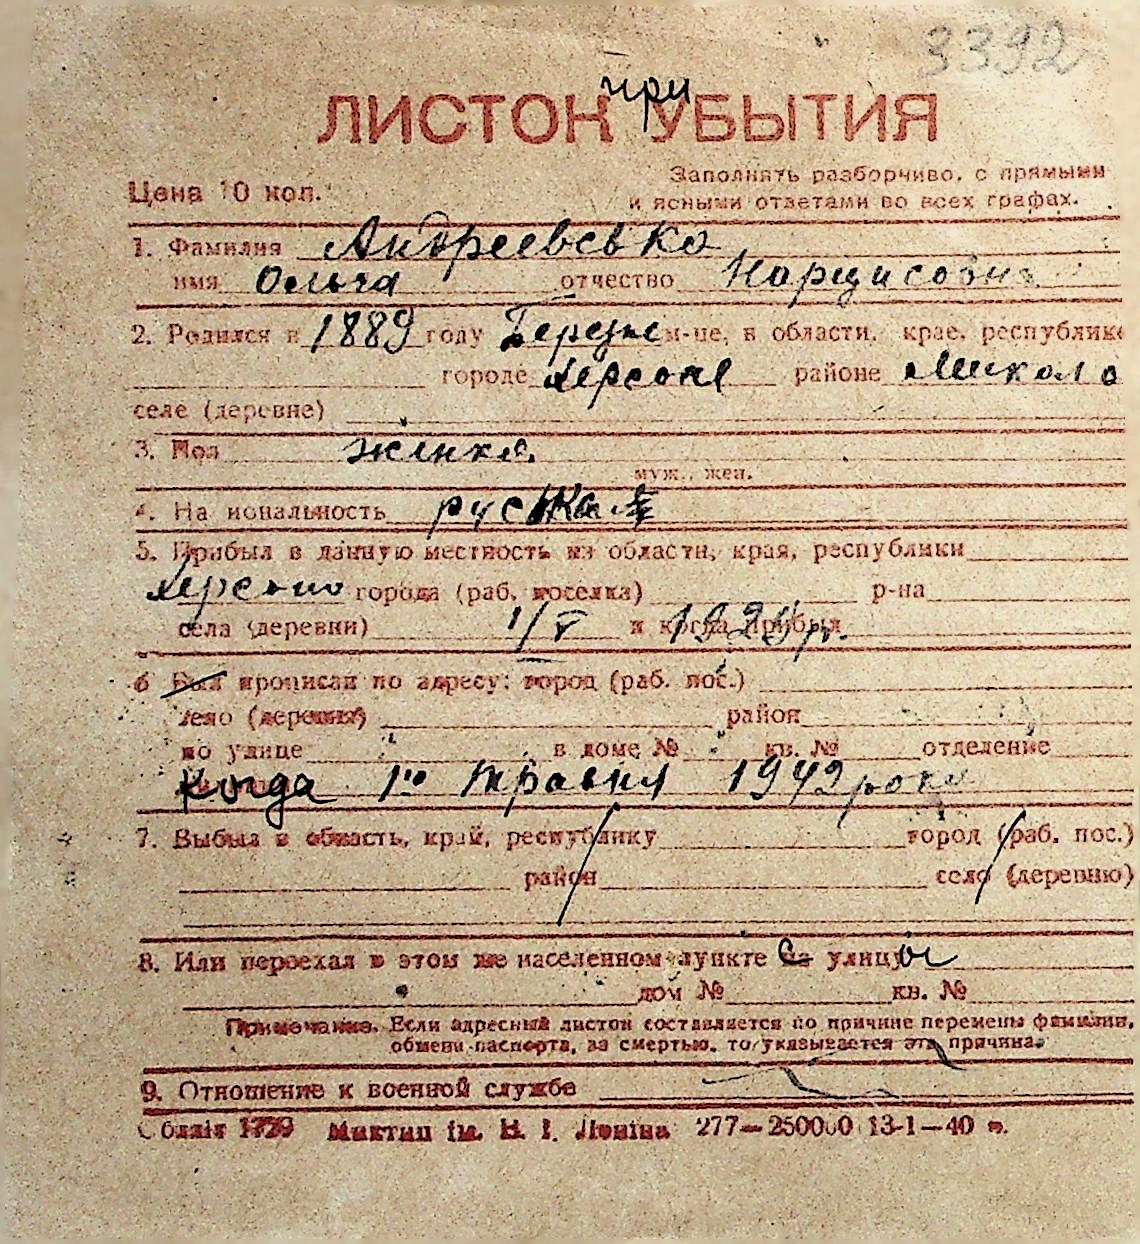 3392
при
ЛИСТОК УБЫТИЯ
Цена 10 коп.
Заполнять разборчиво, с прямыми
и ясными ответами во всех графах.
1. Фамилия Андреевська
имя Ольга отчество Нарцисовна
2. Родился в 1889 году Березне м-це, в области, крае, республике
городе Херсоне районе Микола
селе (деревне)
3. Пол жінка
муж., жен.
4. На иональность руска
5. Прибыл в данную местность из области, края, республики
Херсона города (раб. поселка) р-на
села (деревни) 1/V и когда прибыл
6 Был прописан по адресу: город (раб. пос.)
село (деревня) район
по улице в доме № кв. № отделение
Когда 1го травня 1942 року
7. Выбыл в область, край, республику город (раб. пос.)
район село (деревню)
8. Или переехал в этом же населенном пункте с улицы
дом № кв. №
Примечание. Если адресный листок составляется по причине перемены фамилии,
обмена паспорта, за смертью, то указывается эта причина.
9. Отношение к военной службе
Обліт 1729 Миктип ім. В. І. Леніна 277—250000 13-1—40 г.